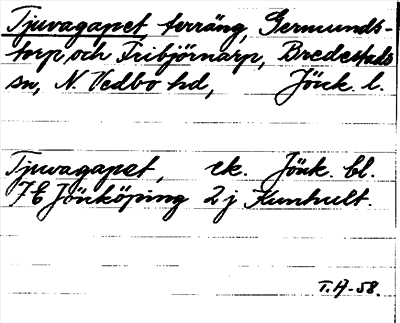 Tjuvagapet, terräng, Germunds-
torp och Fribjörnarp, Bredestads
sn, N. Vedbo hd, Jönk. l.
Tjuvagapet, ek. Jönk. bl.
7E Jönköping 2 j Kunhult.
T.A-58.